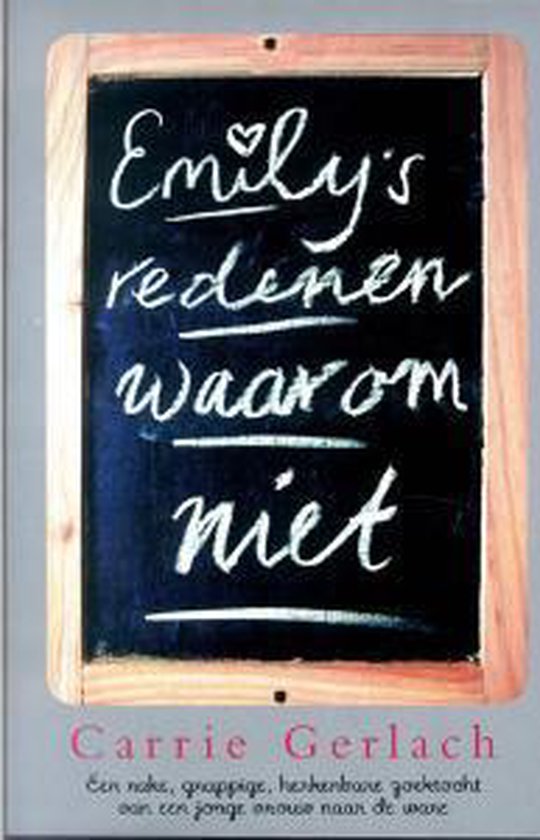 Emily's
redenen
waarom
niet
Carrie Gerlach
Een rake, grappige, herkenbare zoektocht
van een jonge vrouw naar de ware